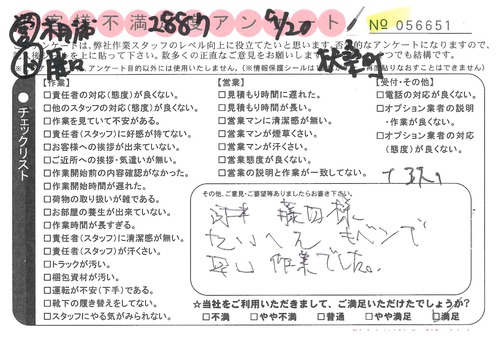 お客様不満足度アンケート
2887 9/20
No 056651
アンケートは、弊社作業スタッフのレベル向上に役立てたいと思います。否定的なアンケートになりますので、
上に貼って下さい。数多くの正直なご意見をお願いします
アンケート目的以外には使用いたしません。(※情報保護シールは
はりなおすことはできません)
チェックリスト
【作業】
□責任者の対応(態度)が良くない。
□他のスタッフの対応(態度)が良くない。
□作業を見ていて不安がある。
□責任者(スタッフ)に好感が持てない。
□お客様への挨拶が出来ていない。
□ご近所への挨拶・気遣いが無い。
□作業開始前の内容確認がなかった。
□作業開始時間が遅れた。
□荷物の取り扱いが雑である。
□お部屋の養生が出来ていない。
□作業時間が長すぎる。
□責任者(スタッフ)に清潔感が無い。
□責任者(スタッフ)が汗くさい。
□トラックが汚い。
□梱包資材が汚い。
□運転が不安(下手)である。
□靴下の履き替えをしてない。
□スタッフにやる気がみられない。
【営業】
□見積もり時間に遅れた。
□見積もり時間が長い。
□営業マンに清潔感が無い。
□営業マンが煙草くさい。
□営業マンが汗くさい。
□営業態度が良くない。
□営業の説明と作業が一致してない。
【受付・その他】
□電話の対応が良くない。
□オプション業者の説明
・作業が良くない。
□オプション業者の対応
(態度)が良くない。
その他、ご意見・ご要望等ありましたらお書き下さい。
藤田様
たいへん
良い作業でした。
☆当社をご利用いただきまして、ご満足いただけたでしょうか?
□不満 □やや不満 □普通 □やや満足 □満足